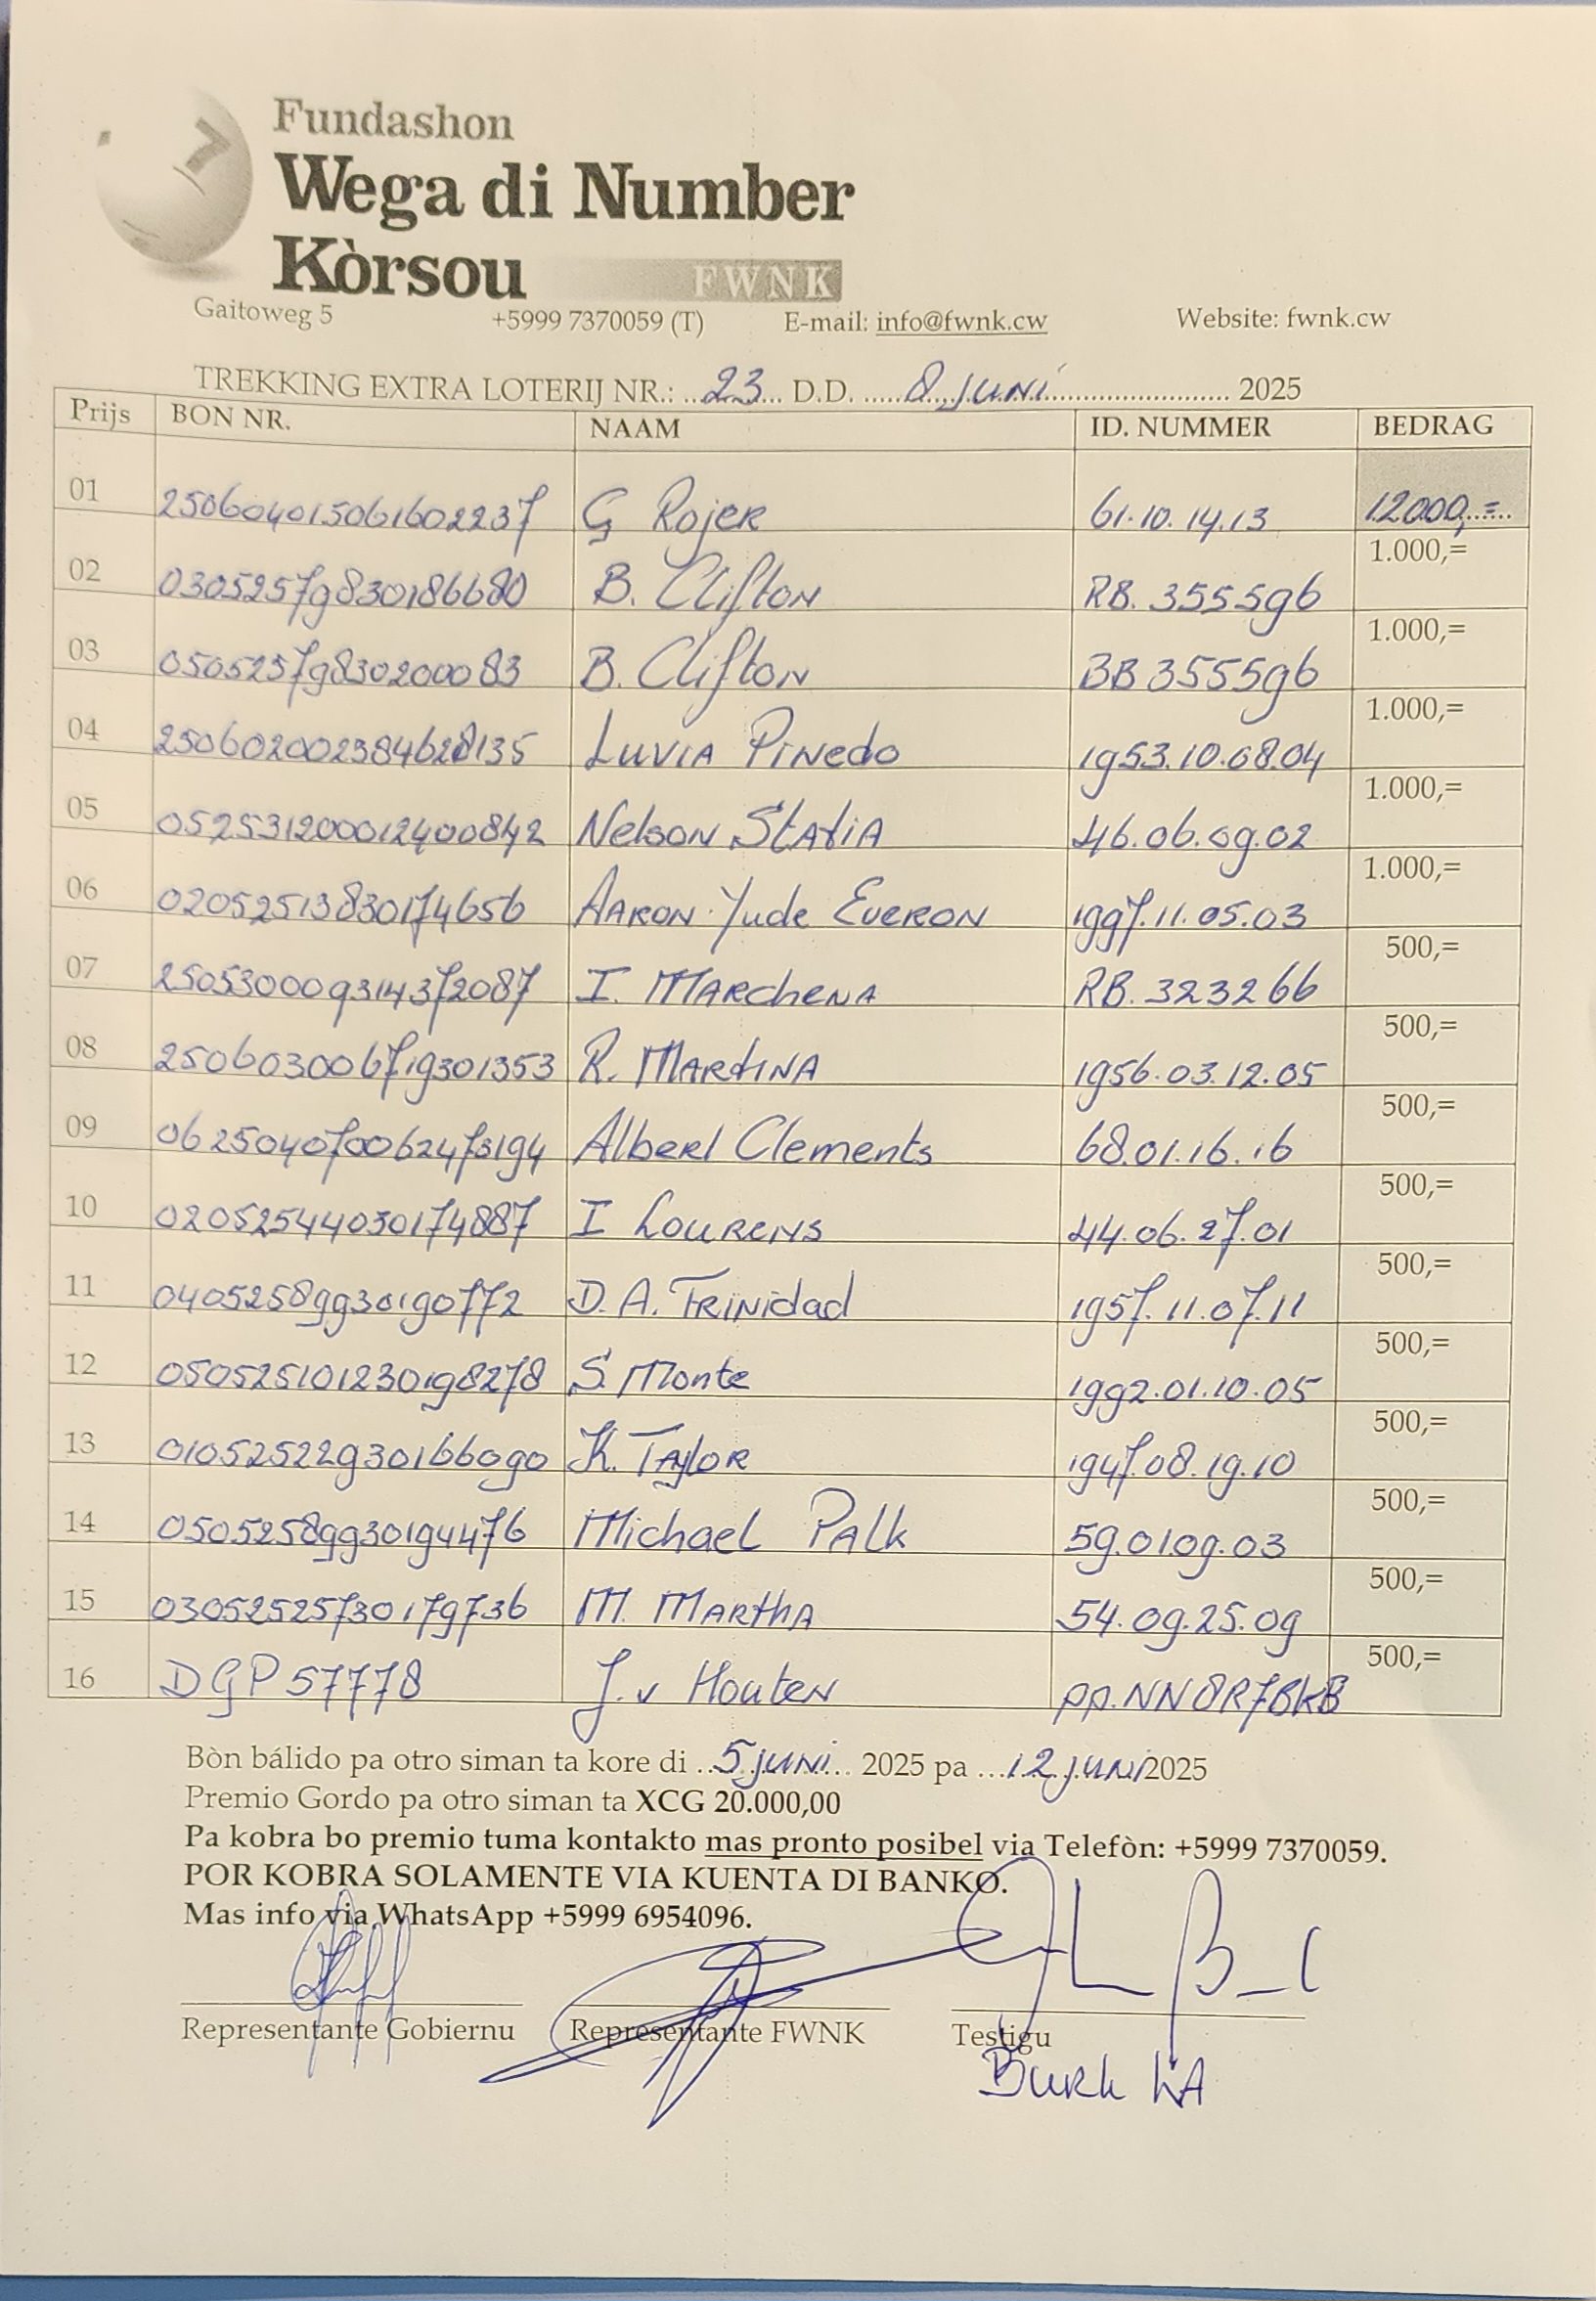 Fundashon
Wega di Number
Kòrsou FWNK
Gaitoweg 5 +5999 7370059 (T) E-mail: info@fwnk.cw Website: fwnk.cw
TREKKING EXTRA LOTERIJ NR.: ..23... D.D. .....8 juni........................ 2025
Prijs BON NR. NAAM ID. NUMMER BEDRAG
01 250604015061602237 G Rojer 61.10.14.13 12000,=
02 03052579830186680 B. Clifton RB. 3555596 1.000,=
03 05052579830200083 B. Clifton BB 3555596 1.000,=
04 250602002384628135 Luvia Pinedo 1953.10.08.04 1.000,=
05 052531200012400842 Nelson Statia 46.06.09.02 1.000,=
06 02052513830174656 Aaron Yude Everon 1997.11.05.03 1.000,=
07 250530009314372087 I. Marchena RB. 323266 500,=
08 250603006719301353 R. Martina 1956.03.12.05 500,=
09 062504070062473194 Albert Clements 68.01.16.16 500,=
10 02052544030174887 I Lourens 44.06.27.01 500,=
11 04052589930190772 D. A. Trinidad 1957.11.07.11 500,=
12 050525101230198278 S. Monte 1992.01.10.05 500,=
13 01052522930166090 K. Taylor 1947.08.19.10 500,=
14 05052589930194476 Michael Palk 59.01.09.03 500,=
15 03052525730179736 M. Martha 54.09.25.09 500,=
16 DGP 57778 J. v Houten pp. NN8R7BKB 500,=
Bòn bálido pa otro siman ta kore di ..5 juni... 2025 pa ...12 juni 2025
Premio Gordo pa otro siman ta XCG 20.000,00
Pa kobra bo premio tuma kontakto mas pronto posibel via Telefòn: +5999 7370059.
POR KOBRA SOLAMENTE VIA KUENTA DI BANKO.
Mas info via WhatsApp +5999 6954096.
Representante Gobiernu Representante FWNK Testigu
Burk